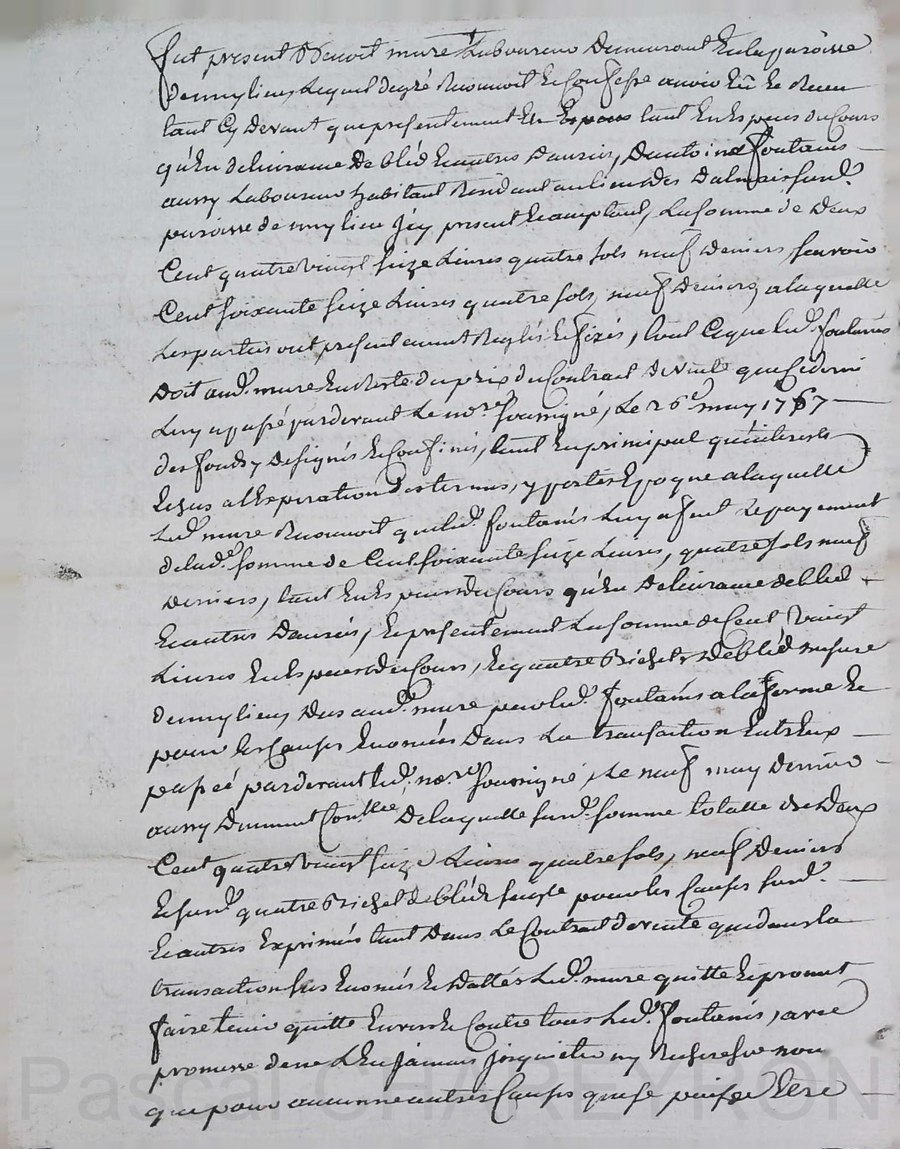 fut present Benoit mure Laboureur Demeurant En la paroisse
demmylieu, Lequel degré Reconnoit Et Confesse avoir Eû Et Receu
tant Cy devant que présentement En Espèces tant En Espèces du Cours
qu'En délivrance De bléd Et autres Danrées, D'antoine foutanis
aussy Laboureur habitant Résidant au lieu des Dalmais susd.
paroisse demmylieu Jcy présent Et acceptant, La somme de Deux
Cent quatre vingt seize Livres quatre sols neuf Deniers sçavoir
Cent soixante seize Livres quatre sols, neuf Deniers, a laquelle
Les parties ont présentement Réglés Et fixés, tout Ce que led. foutanis
Doit aud. mure En Reste du prix du Contract de vente que Cederni
Luy a passé pardevant Le no.re soussigné, Le 26e may 1767
des fonds y désignés Et Confinés, tant En principal qu'interests
Echus a l'Expiration Des termes, y portés Epoque a laquelle
Led. mure Reconnoit que led. foutanis Luy a fait Le payement
de lad. somme de Cent soixante seize Livres, quatre sols neuf
Deniers, tant En Espèces du Cours qu'En Délivrance de bled
Et autres Danrées, Et présentement La somme de Cent, vingt
Livres En Espèces du Cours, Et quatre Bichets De bléd mesure
demmylieu, Dus aud. mure par led. foutanis a la forme Et
pour les Causes Enoncées Dans La transaction Entr'Eux
passée pardevant led. no.re soussigné, Le neuf may Dernier
aussy Dûment Conllée De laquelle susd. somme totalle de Deux
Cent quatre vingt seize Livres quatre sols, neuf Deniers
Et susd. quatre Bichet de bléd seigle pour les Causes susd.
Et autres Exprimées tant Dans Le Contract de vente que dans la
transaction sus Enoncés Et Dattés Led. mure quitte Et promet
faire tenir quitte Envers Et Contre tous Led. foutanis, avec
promesse de ne L'En jamais Jnquietter ny Rechercher non
que pour aucunne autres Causes que se puisse Etre
Pascal CHAREYRON